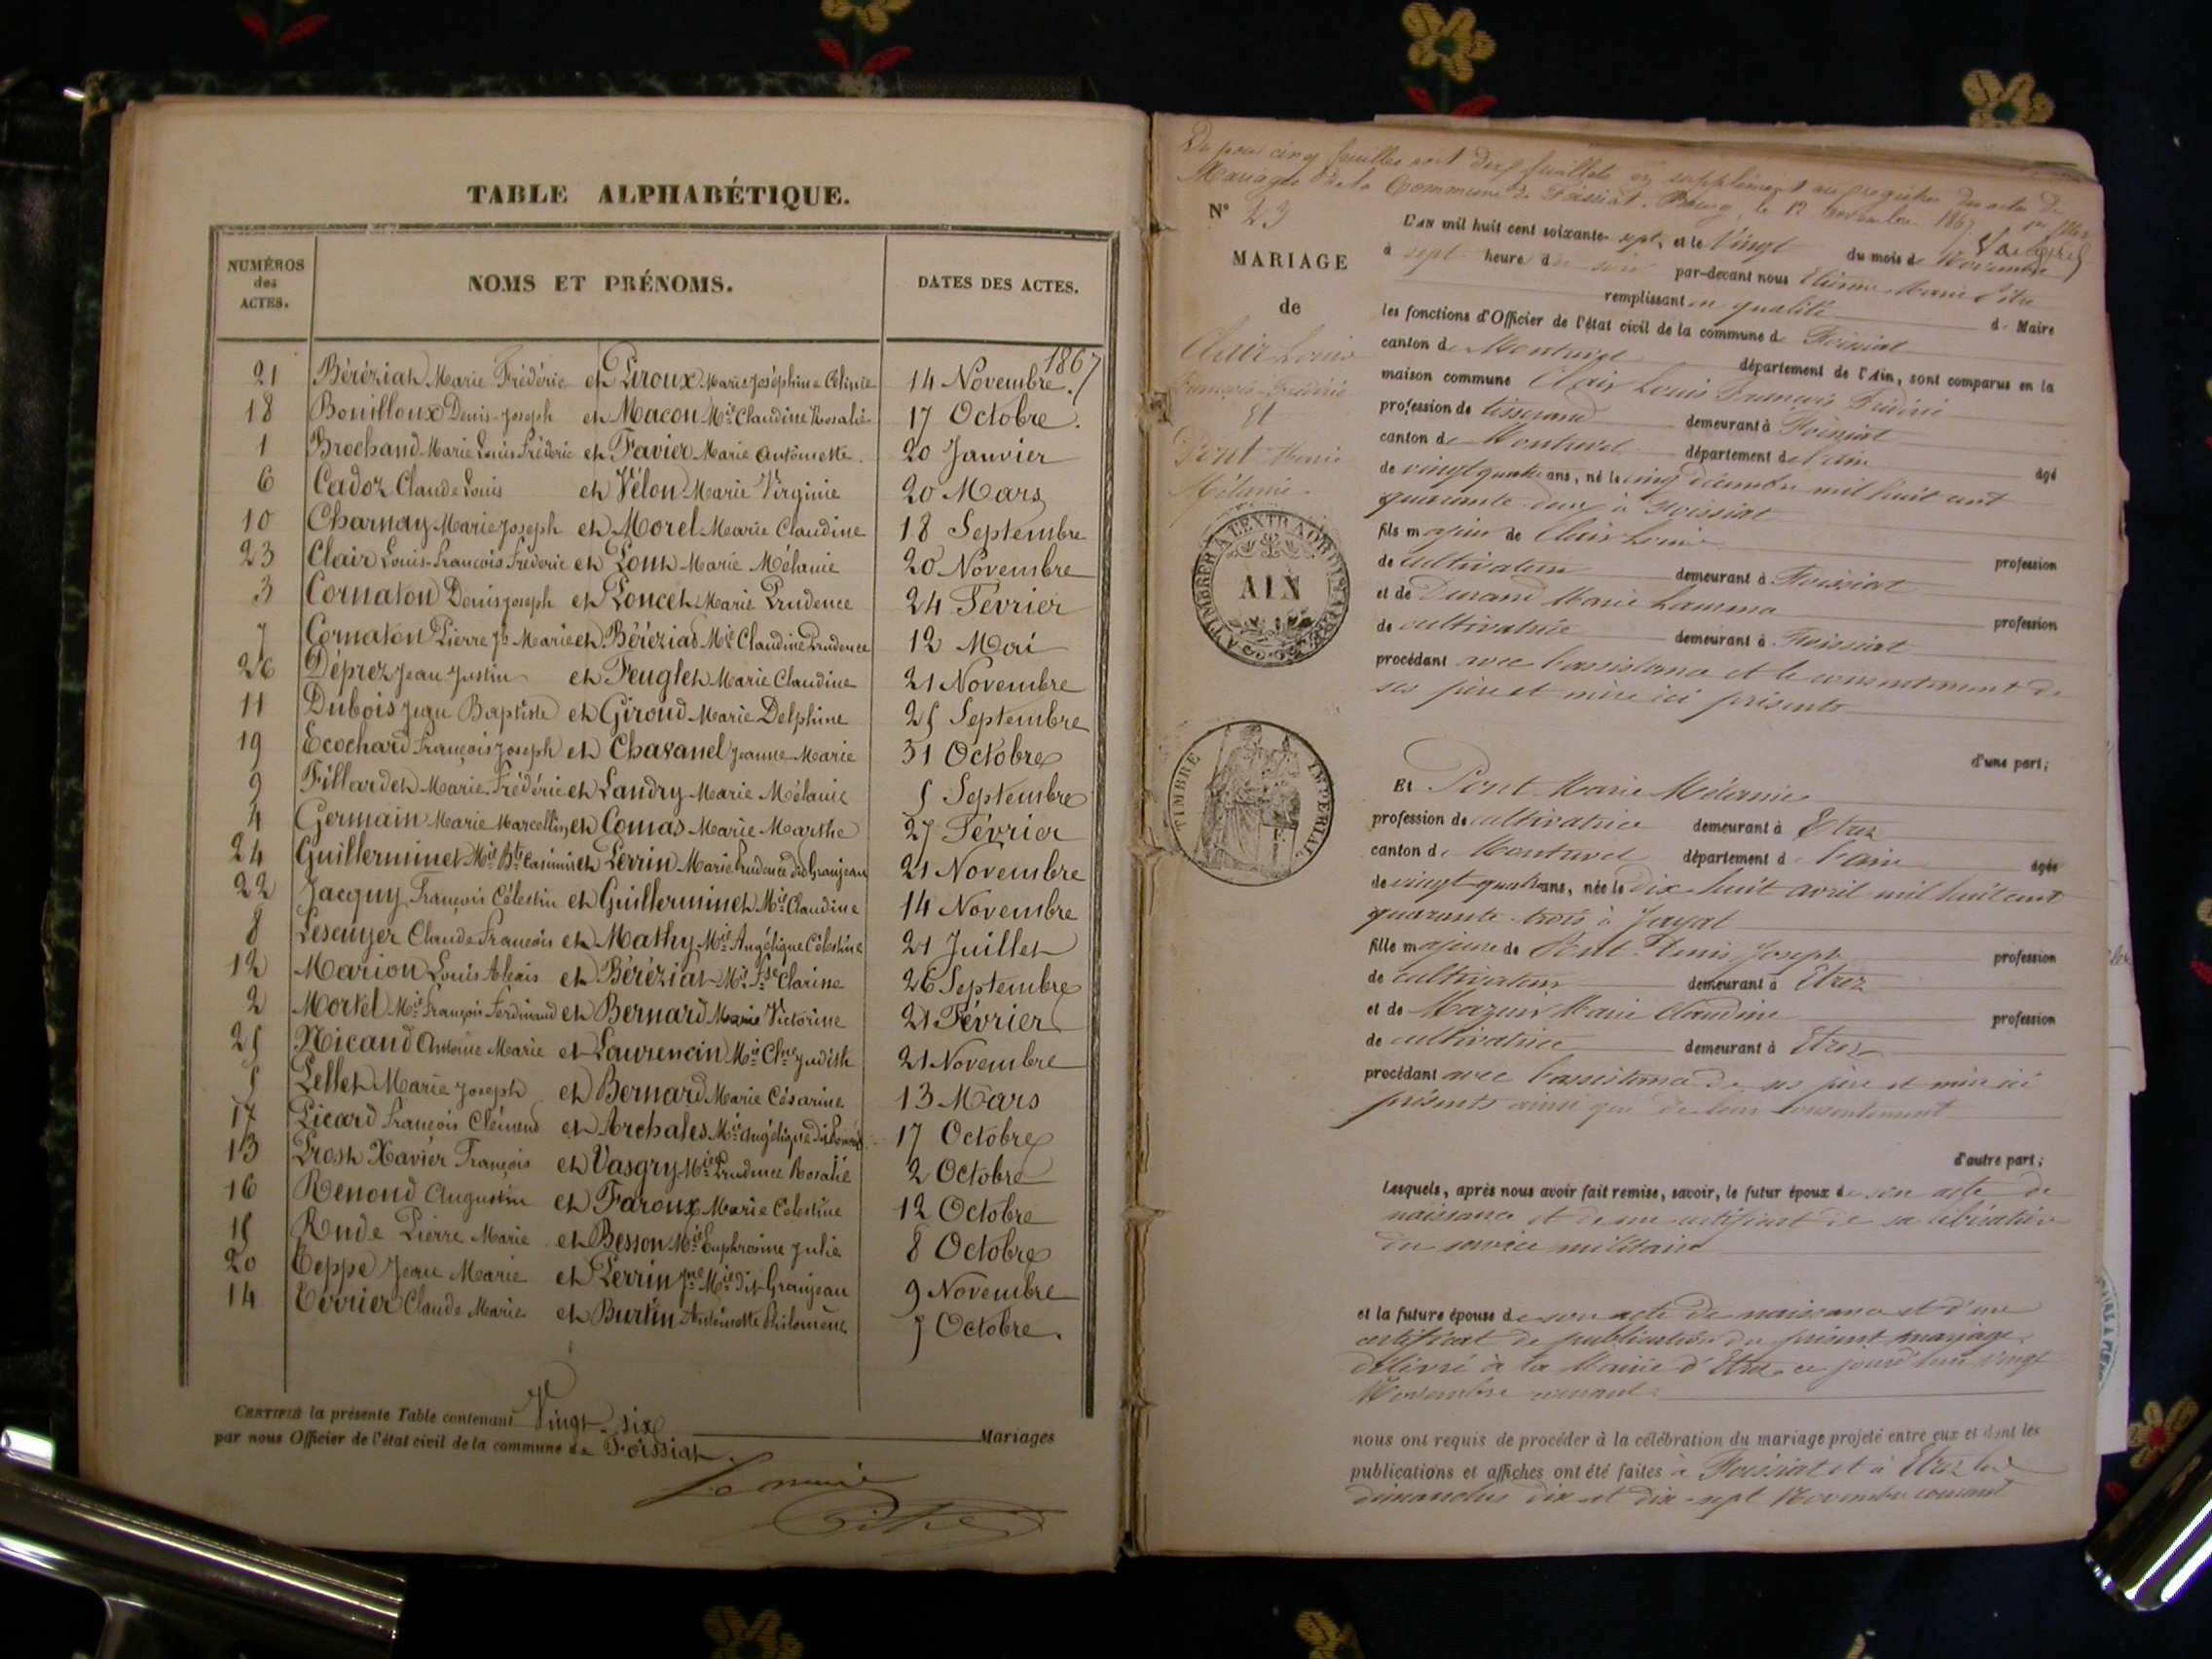 TABLE ALPHABÉTIQUE.
NUMÉROS des ACTES.
NOMS ET PRÉNOMS.
DATES DES ACTES.
1867
21 Béréziat Marie Frédéric et Piroux Marie Joséphine 14 Novembre.
18 Bouilloux Denis-Joseph et Macon Mie Claudine Rosalie 17 Octobre.
1 Brochand Marie Louis Frédéric et Favier Marie Antoinette. 20 Janvier
6 Cadoz Claude Louis et Vélon Marie Virginie 20 Mars
10 Charnay Marie Joseph et Morel Marie Claudine 18 Septembre
23 Clair Louis-François Frédéric et Pont Marie Mélanie 20 Novembre
3 Cornaton Denis Joseph et Poncet Marie Prudence 24 Février
7 Cornaton Pierre Jh Marie et Béréziat Mie Claudine Prudence 12 Mai
26 Déprez Jean Justin et Feuglet Marie Claudine 21 Novembre
11 Dubois Jean Baptiste et Giroud Marie Delphine 25 Septembre
19 Ecochard François Joseph et Chavanel Jeanne Marie 31 Octobre
9 Fillardet Marie Frédéric et Landry Marie Mélanie 5 Septembre
4 Germain Marie Marcellin et Comas Marie Marthe 27 Février
24 Guillerminet Mie Bte Casimir et Perrin Marie Prudence dit Granjean 21 Novembre
22 Jacquy François Célestin et Guillerminet Mie Claudine 14 Novembre
8 Lescuyer Claude François et Mathy Mie Angélique Célestine 21 Juillet
12 Marion Louis Alexis et Béréziat Mie Jse Clarine 26 Septembre
2 Mortel Mie François Ferdinand et Bernard Marie Victorine 21 Février
25 Nicand Antoine Marie et Laurencin Mie Clne Judith 21 Novembre
5 Pellet Marie Joseph et Bernard Marie Césarine 13 Mars
17 Picard François Clément et Archales Mie Angélique 17 Octobre
13 Prost Xavier François et Vasgry Mie Prudence Rosalie 2 Octobre
16 Renoud Augustin et Faroux Marie Celestine 12 Octobre
15 Rude Pierre Marie et Besson Mie Euphrosine Julie 8 Octobre
20 Teppe Jean Marie et Perrin Jne Mie dit Granjean 9 Novembre
14 Terrier Claude Marie et Burtin Antoinette Philomène 7 Octobre.
CERTIFIÉ la présente Table contenant Vingt-six Mariages
par nous Officier de l'état civil de la commune de Foissiat.
Le maire
Pitre
Vu pour cinq feuilles soit dix feuillets en supplément au registre des actes de
Mariages de la Commune de Foissiat. Bourg, le 12 novembre 1867
N° 23
MARIAGE
de
Clair Louis
François-Frédéric
Et
Pont Marie
Mélanie
A TIMBRER A L'EXTRAORDINAIRE
AIN
TIMBRE IMPERIAL
L'AN mil huit cent soixante-sept, et le Vingt du mois de Novembre
à sept heure d du soir par-devant nous Etienne Marie Pitre
remplissant en qualité de Maire
les fonctions d'Officier de l'état civil de la commune de Foissiat
canton de Montrevel département de l'Ain, sont comparus en la
maison commune Clair Louis François Frédéric
profession de tisserand demeurant à Foissiat
canton de Montrevel département de l'ain âgé
de vingt quatre ans, né le cinq décembre mil huit cent
quarante deux à Foissiat
fils majeur de Clair Louis profession
de cultivateur demeurant à Foissiat
et de Durand Marie profession
de cultivatrice demeurant à Foissiat
procédant avec l'assistance et le consentement de
ses père et mère ici présents
d'une part;
Et Pont Marie Mélanie
profession de cultivatrice demeurant à Etrez
canton de Montrevel département de l'ain âgée
de vingt quatre ans, née le Dix huit avril mil huit cent
quarante trois à Jayat
fille majeure de Pont Denis Joseph profession
de cultivateur demeurant à Etrez
et de Mazuir Marie Claudine profession
de cultivatrice demeurant à Etrez
procédant avec l'assistance de ses père et mère ici
présents ainsi que de leur consentement
d'autre part;
Lesquels, après nous avoir fait remise, savoir, le futur époux de son acte de
naissance et de un certificat de sa libération
du service militaire
et la future épouse de son acte de naissance et d'un
certificat de publication du présent mariage
délivré à la Mairie d'Etrez ce jourd'hui vingt
Novembre courant
nous ont requis de procéder à la célébration du mariage projeté entre eux et dont les
publications et affiches ont été faites à Foissiat et à Etrez les
dimanches dix et dix-sept Novembre courant